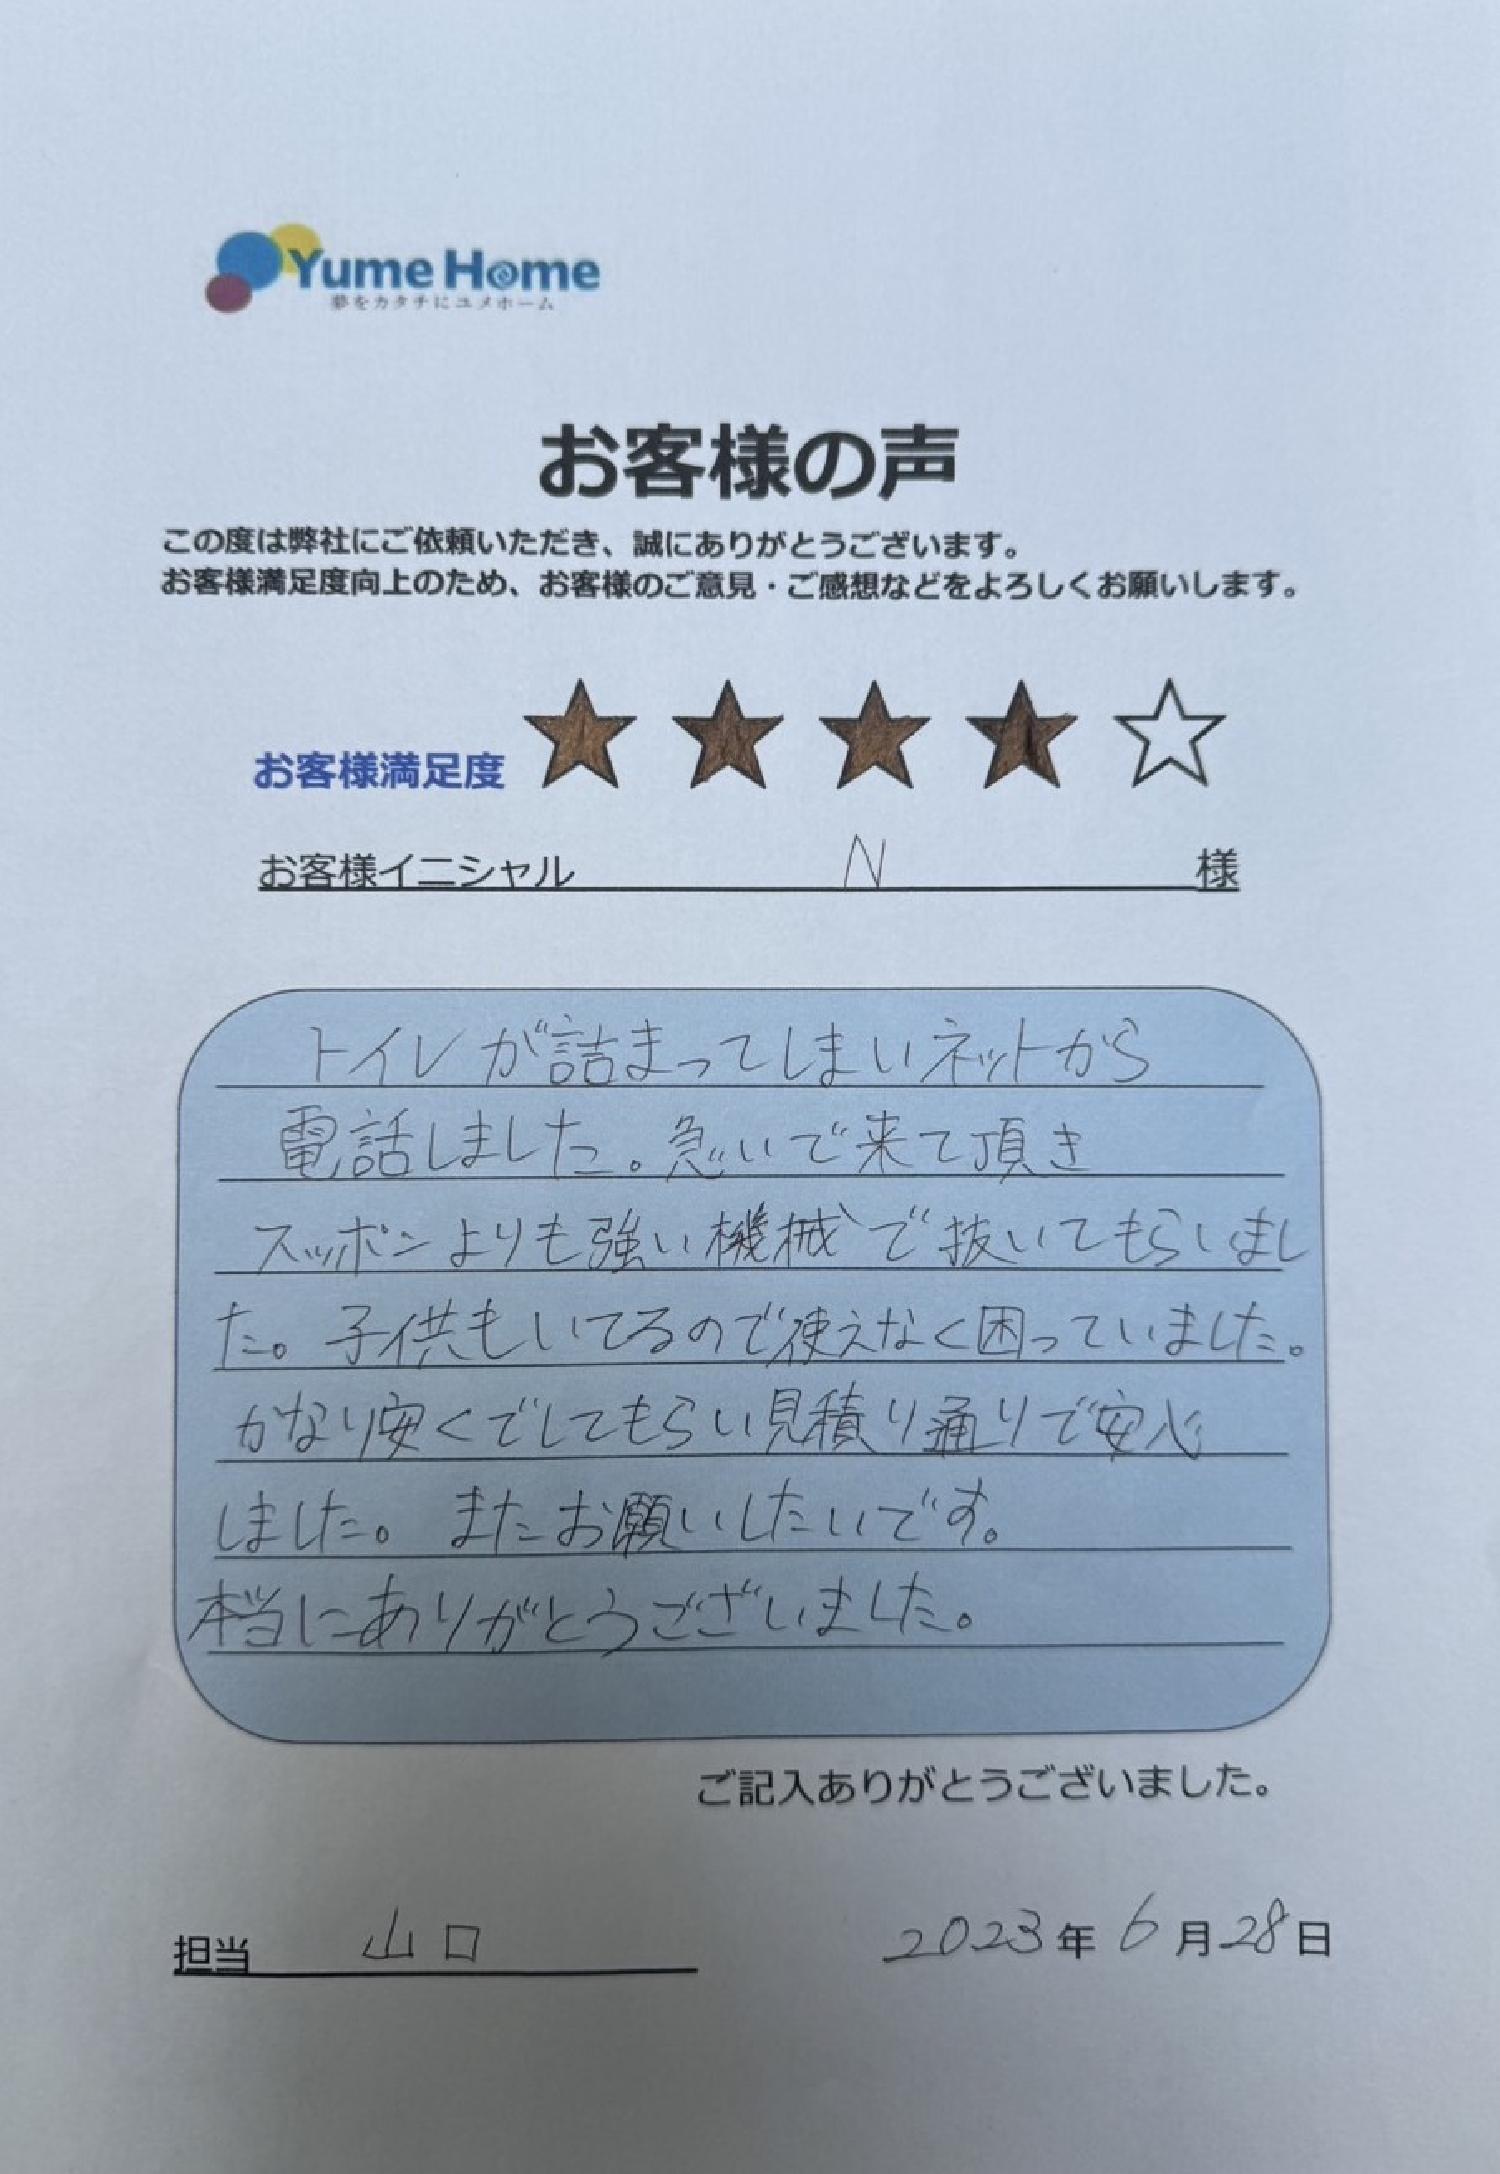 Yume Home
夢をカタチにユメホーム
お客様の声
この度は弊社にご依頼いただき、誠にありがとうございます。
お客様満足度向上のため、お客様のご意見・ご感想などをよろしくお願いします。
お客様満足度 ★ ★ ★ ★ ☆
お客様イニシャル N 様
トイレが詰まってしまいネットから
電話しました。急いで来て頂き
スッポンよりも強い機械で抜いてもらいまし
た。子供もいてるので使えなく困っていました。
かなり安くでしてもらい見積り通りで安心
しました。またお願いしたいです。
本当にありがとうございました。
ご記入ありがとうございました。
担当 山口 2023年6月28日